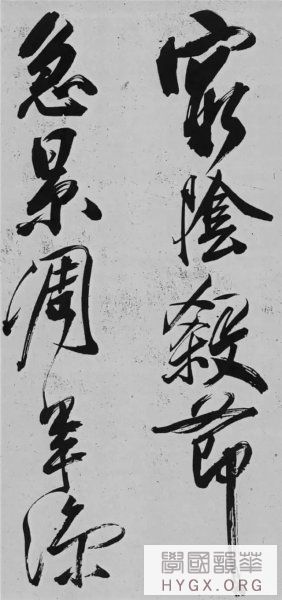 窮陰殺節
急景凋年涼
華韻國學
HYGX.ORG